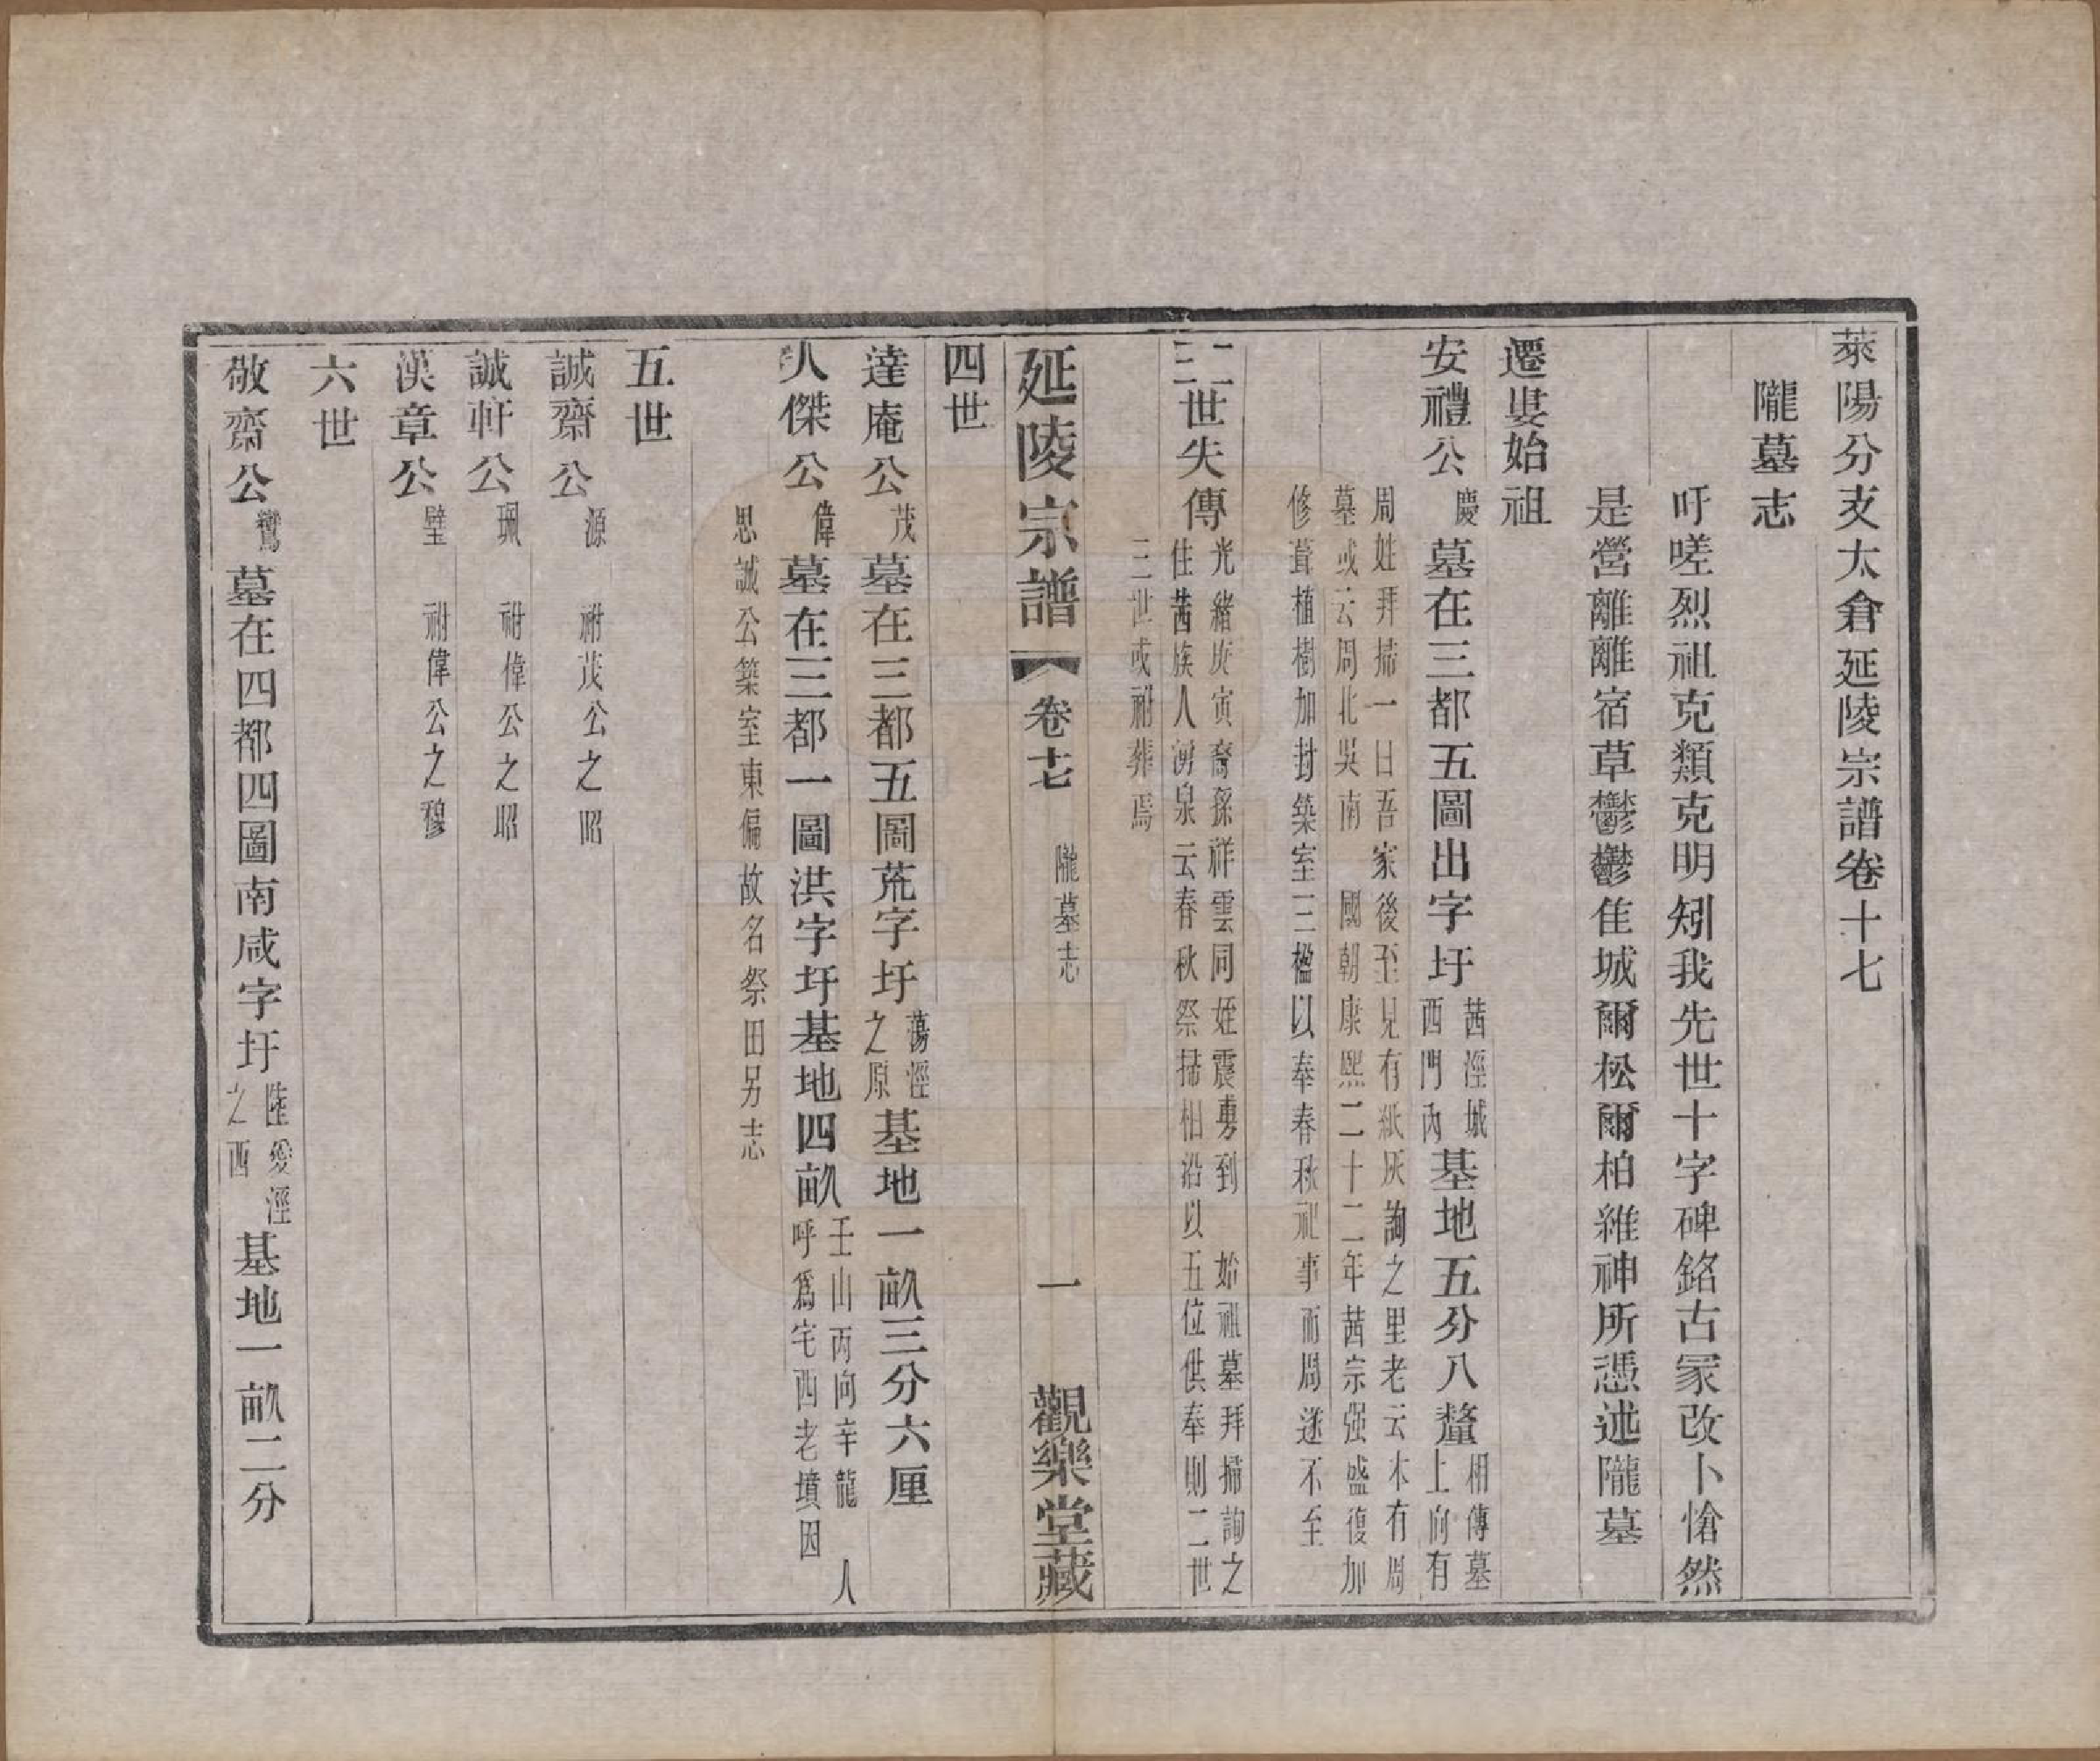 萊陽分支太倉延陵宗譜卷十七
隴墓志
吁嗟烈祖克類克明矧我先世十字碑銘古冢改卜愴然
是營離離宿草鬱鬱佳城爾松爾柏維神所憑述隴墓
遷婁始祖
安禮公慶墓在三都五圖出字圩茜涇城西門內基地五分八釐相傳墓上向有
周姓拜掃一日吾家後至見有紙灰詢之里老云本有周
墓或云周北吳南 國朝康熙二十二年茜宗强盛復加
修葺植樹加封築室三楹以奉春秋祀事而周遂不至
二三世失傳光緒庚寅裔孫祥雲同姪震勇到 始祖墓拜掃詢之
住茜族人湧泉云春秋祭掃相沿以五位供奉則二世
三世或祔葬焉
延陵宗譜 卷十七 隴墓志 一 觀樂堂藏
四世
達庵公茂墓在三都五圖荒字圩蕩涇之原基地一畝三分六厘
人傑公偉墓在三都一圖洪字圩基地四畝壬山丙向辛龍 人
呼爲宅西老墳因
思誠公築室東偏故名祭田另志
五世
誠齋公源 祔茂公之昭
誠軒公珮 祔偉公之昭
漢章公璧 祔偉公之穆
六世
敬齋公鸞墓在四都四圖南咸字圩陸愛涇之西基地一畝二分